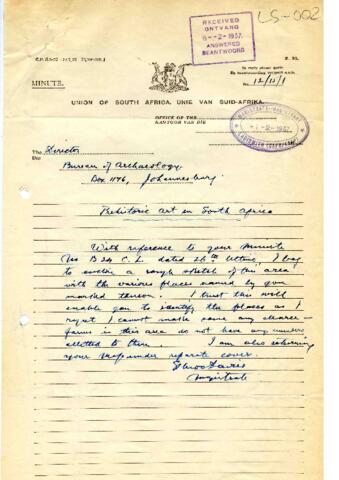 LS-002
RECEIVED
ONTVANG
8-2-1937.
ANSWERED
BEANTWOORD
MINUTE.
No. 12/15/1
UNION OF SOUTH AFRICA. UNIE VAN SUID-AFRIKA.
OFFICE OF THE
KANTOOR VAN DIE
-2-1937
The Director
Die
Bureau of Archaeology
Box 1176, Johannesburg
Prehistoric Art in South Africa
With reference to your Minute
No B 24 C. L. dated 26th Ultimo, I beg
to enclose a rough sketch of this area
with the various places named by you
marked thereon. I trust this will
enable you to identify the places as I
regret I cannot make same any clearer –
farms in this area do not have any numbers
allotted to them. I am also returning
your map under separate cover.
Magistrate